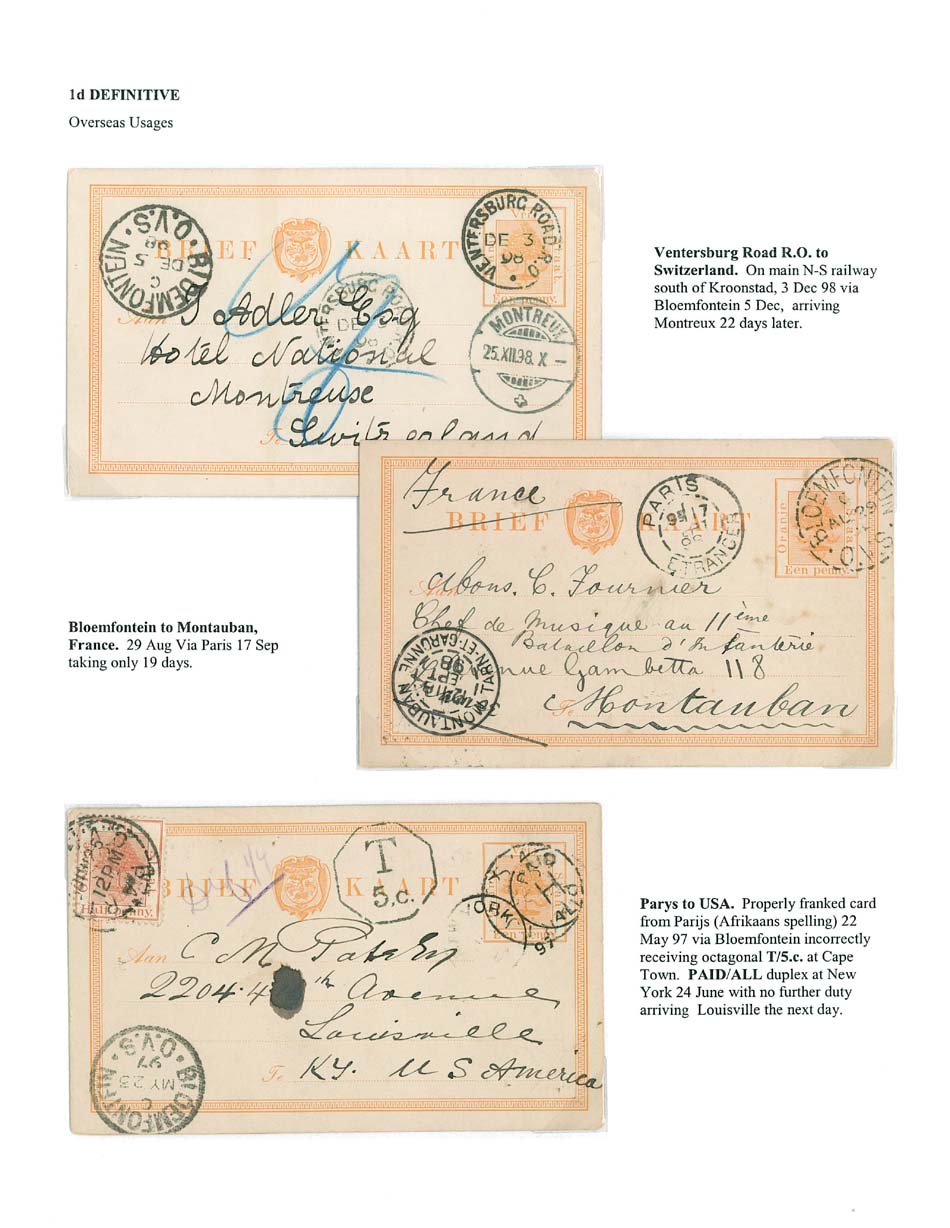 1d DEFINITIVE
Overseas Usages
BLOEMFONTEIN · O.V.S.
C
DE 5
98
BRIEF KAART
VENTERSBURG ROAD R.O.
DE 3
98
Een penny.
Aan J Adler Esq
VENTERSBURG ROAD
DE
98
Hotel National
MONTREUX
25.XII.98.X
Montreuse
To Switzerland
Ventersburg Road R.O. to
Switzerland. On main N-S railway
south of Kroonstad, 3 Dec 98 via
Bloemfontein 5 Dec, arriving
Montreux 22 days later.
France
BRIEF KAART
PARIS
ETRANGER
BLOEMFONTEIN
AU 29
Oranje
Een penny.
Aan Mons. C. Fournier
Chef de Musique au 11ème
Bataillon d'Infanterie
Avenue Gambetta 118
To Montauban
MONTAUBAN
TARN-ET-GARONNE
Bloemfontein to Montauban,
France. 29 Aug Via Paris 17 Sep
taking only 19 days.
12 PM
Half Penny.
BRIEF KAART
T
5.c.
YORK
PAID
ALL
97
Een Penny
Aan C M
2204·4 th Avenue
Louisville
To KY. U S America
BLOEMFONTEIN · O.V.S.
C
MY 23
97
Parys to USA. Properly franked card
from Parijs (Afrikaans spelling) 22
May 97 via Bloemfontein incorrectly
receiving octagonal T/5.c. at Cape
Town. PAID/ALL duplex at New
York 24 June with no further duty
arriving Louisville the next day.